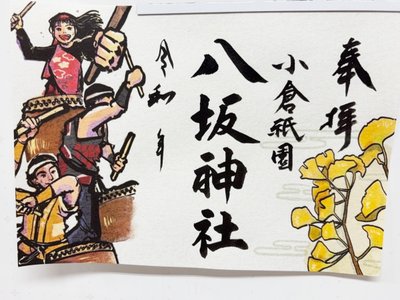 奉拝
小倉祇園
八坂神社
令和 年